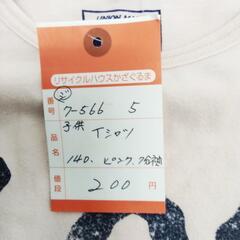 UNION
リサイクルハウスかざぐるま
番号 7-566 5
品名 子供 Tシャツ
140. ピンク 7分袖
値段 200円